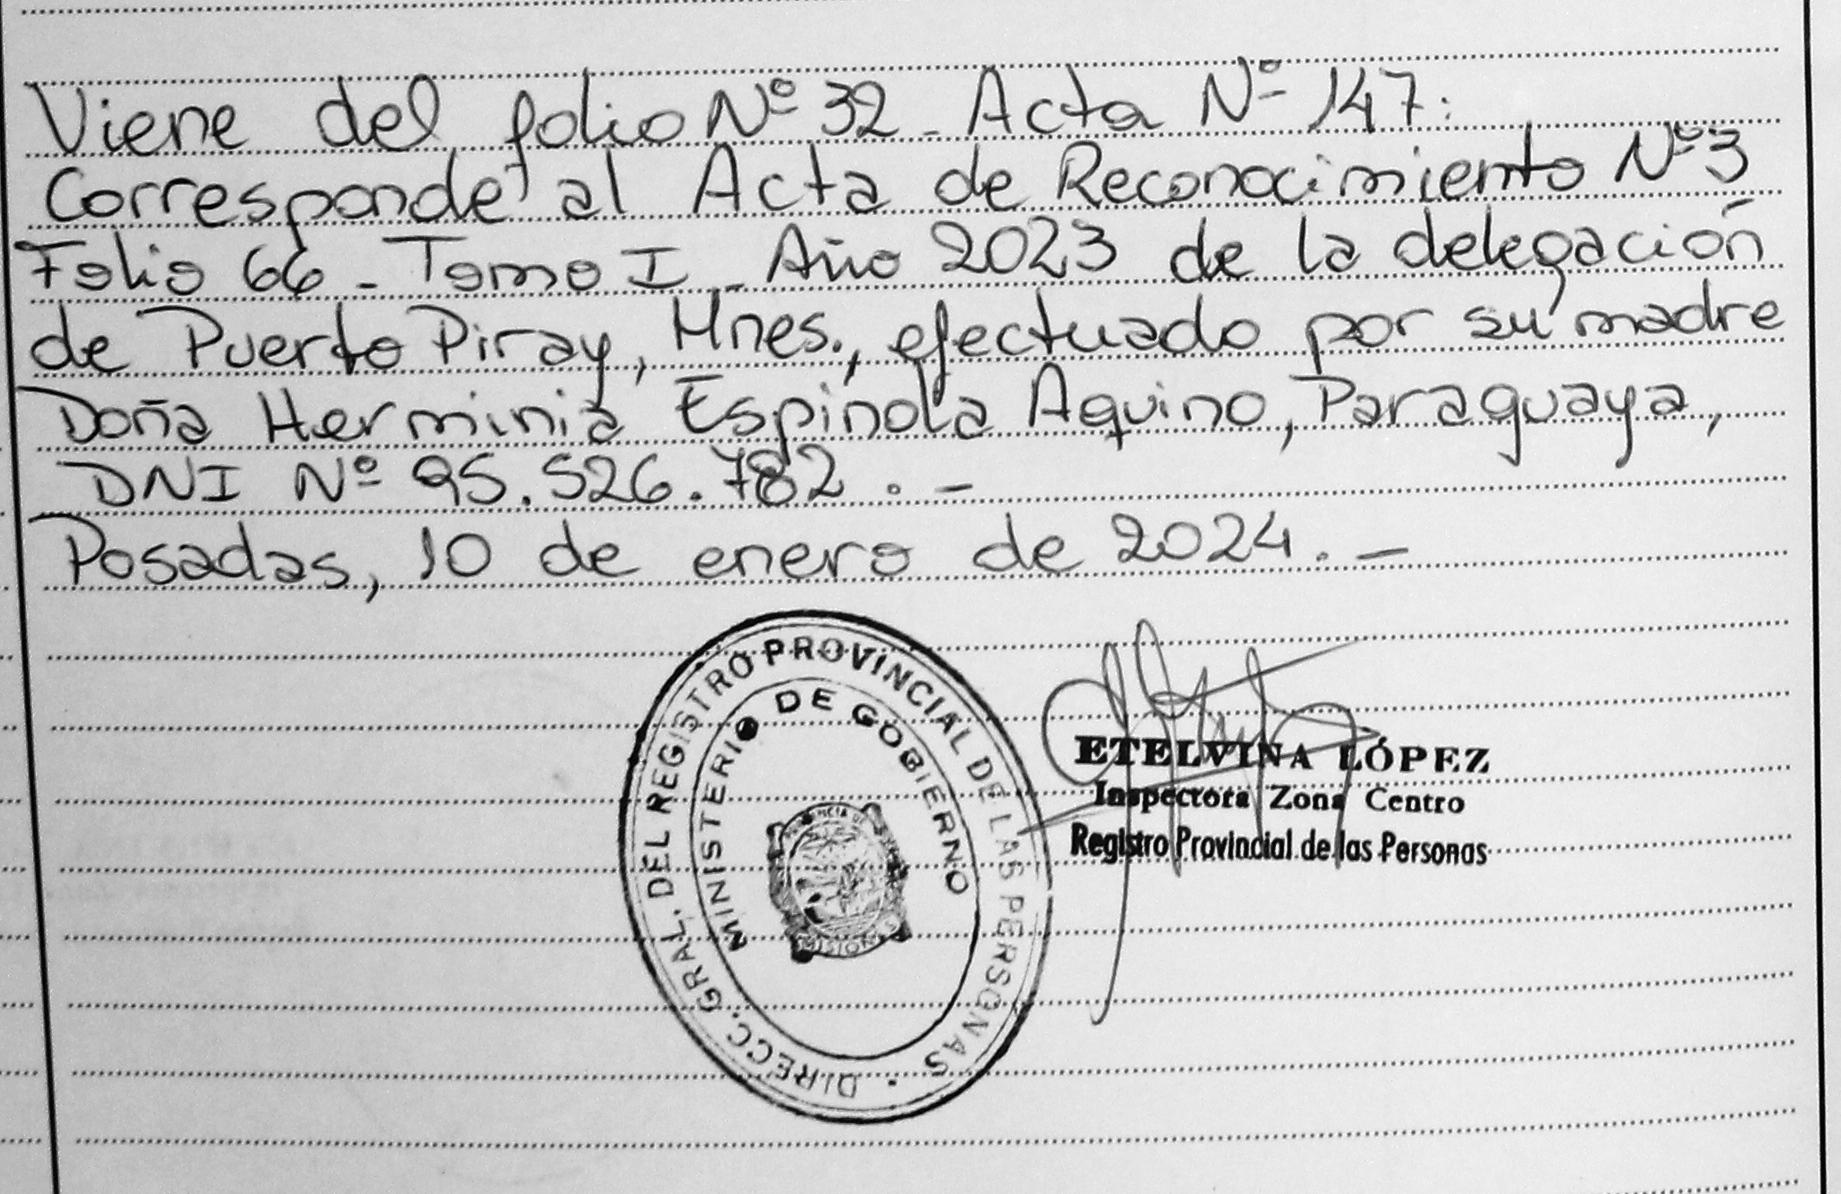 Viene del folio Nº 32 - Acta Nº 147:
Corresponde al Acta de Reconocimiento Nº 3
Folio 66 - Tomo I - Año 2023 de la delegación
de Puerto Piray, Mnes., efectuado por su madre
Doña Herminia Espínola Aquino, Paraguaya,
DNI Nº 95.526.782. -
Posadas, 10 de enero de 2024. -
DIRECC. GRAL. DEL REGISTRO PROVINCIAL DE LAS PERSONAS
MINISTERIO DE GOBIERNO
PROVINCIA DE
MISIONES
ETELVINA LÓPEZ
Inspectora Zona Centro
Registro Provincial de las Personas